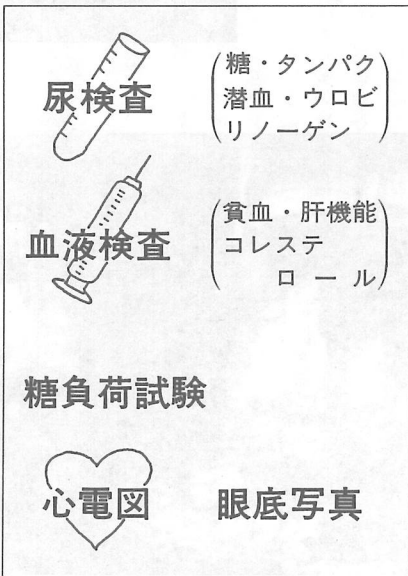 尿検査
(糖・タンパク
潜血・ウロビ
リノーゲン)
血液検査
(貧血・肝機能
コレステ
ロール)
糖負荷試験
心電図 眼底写真